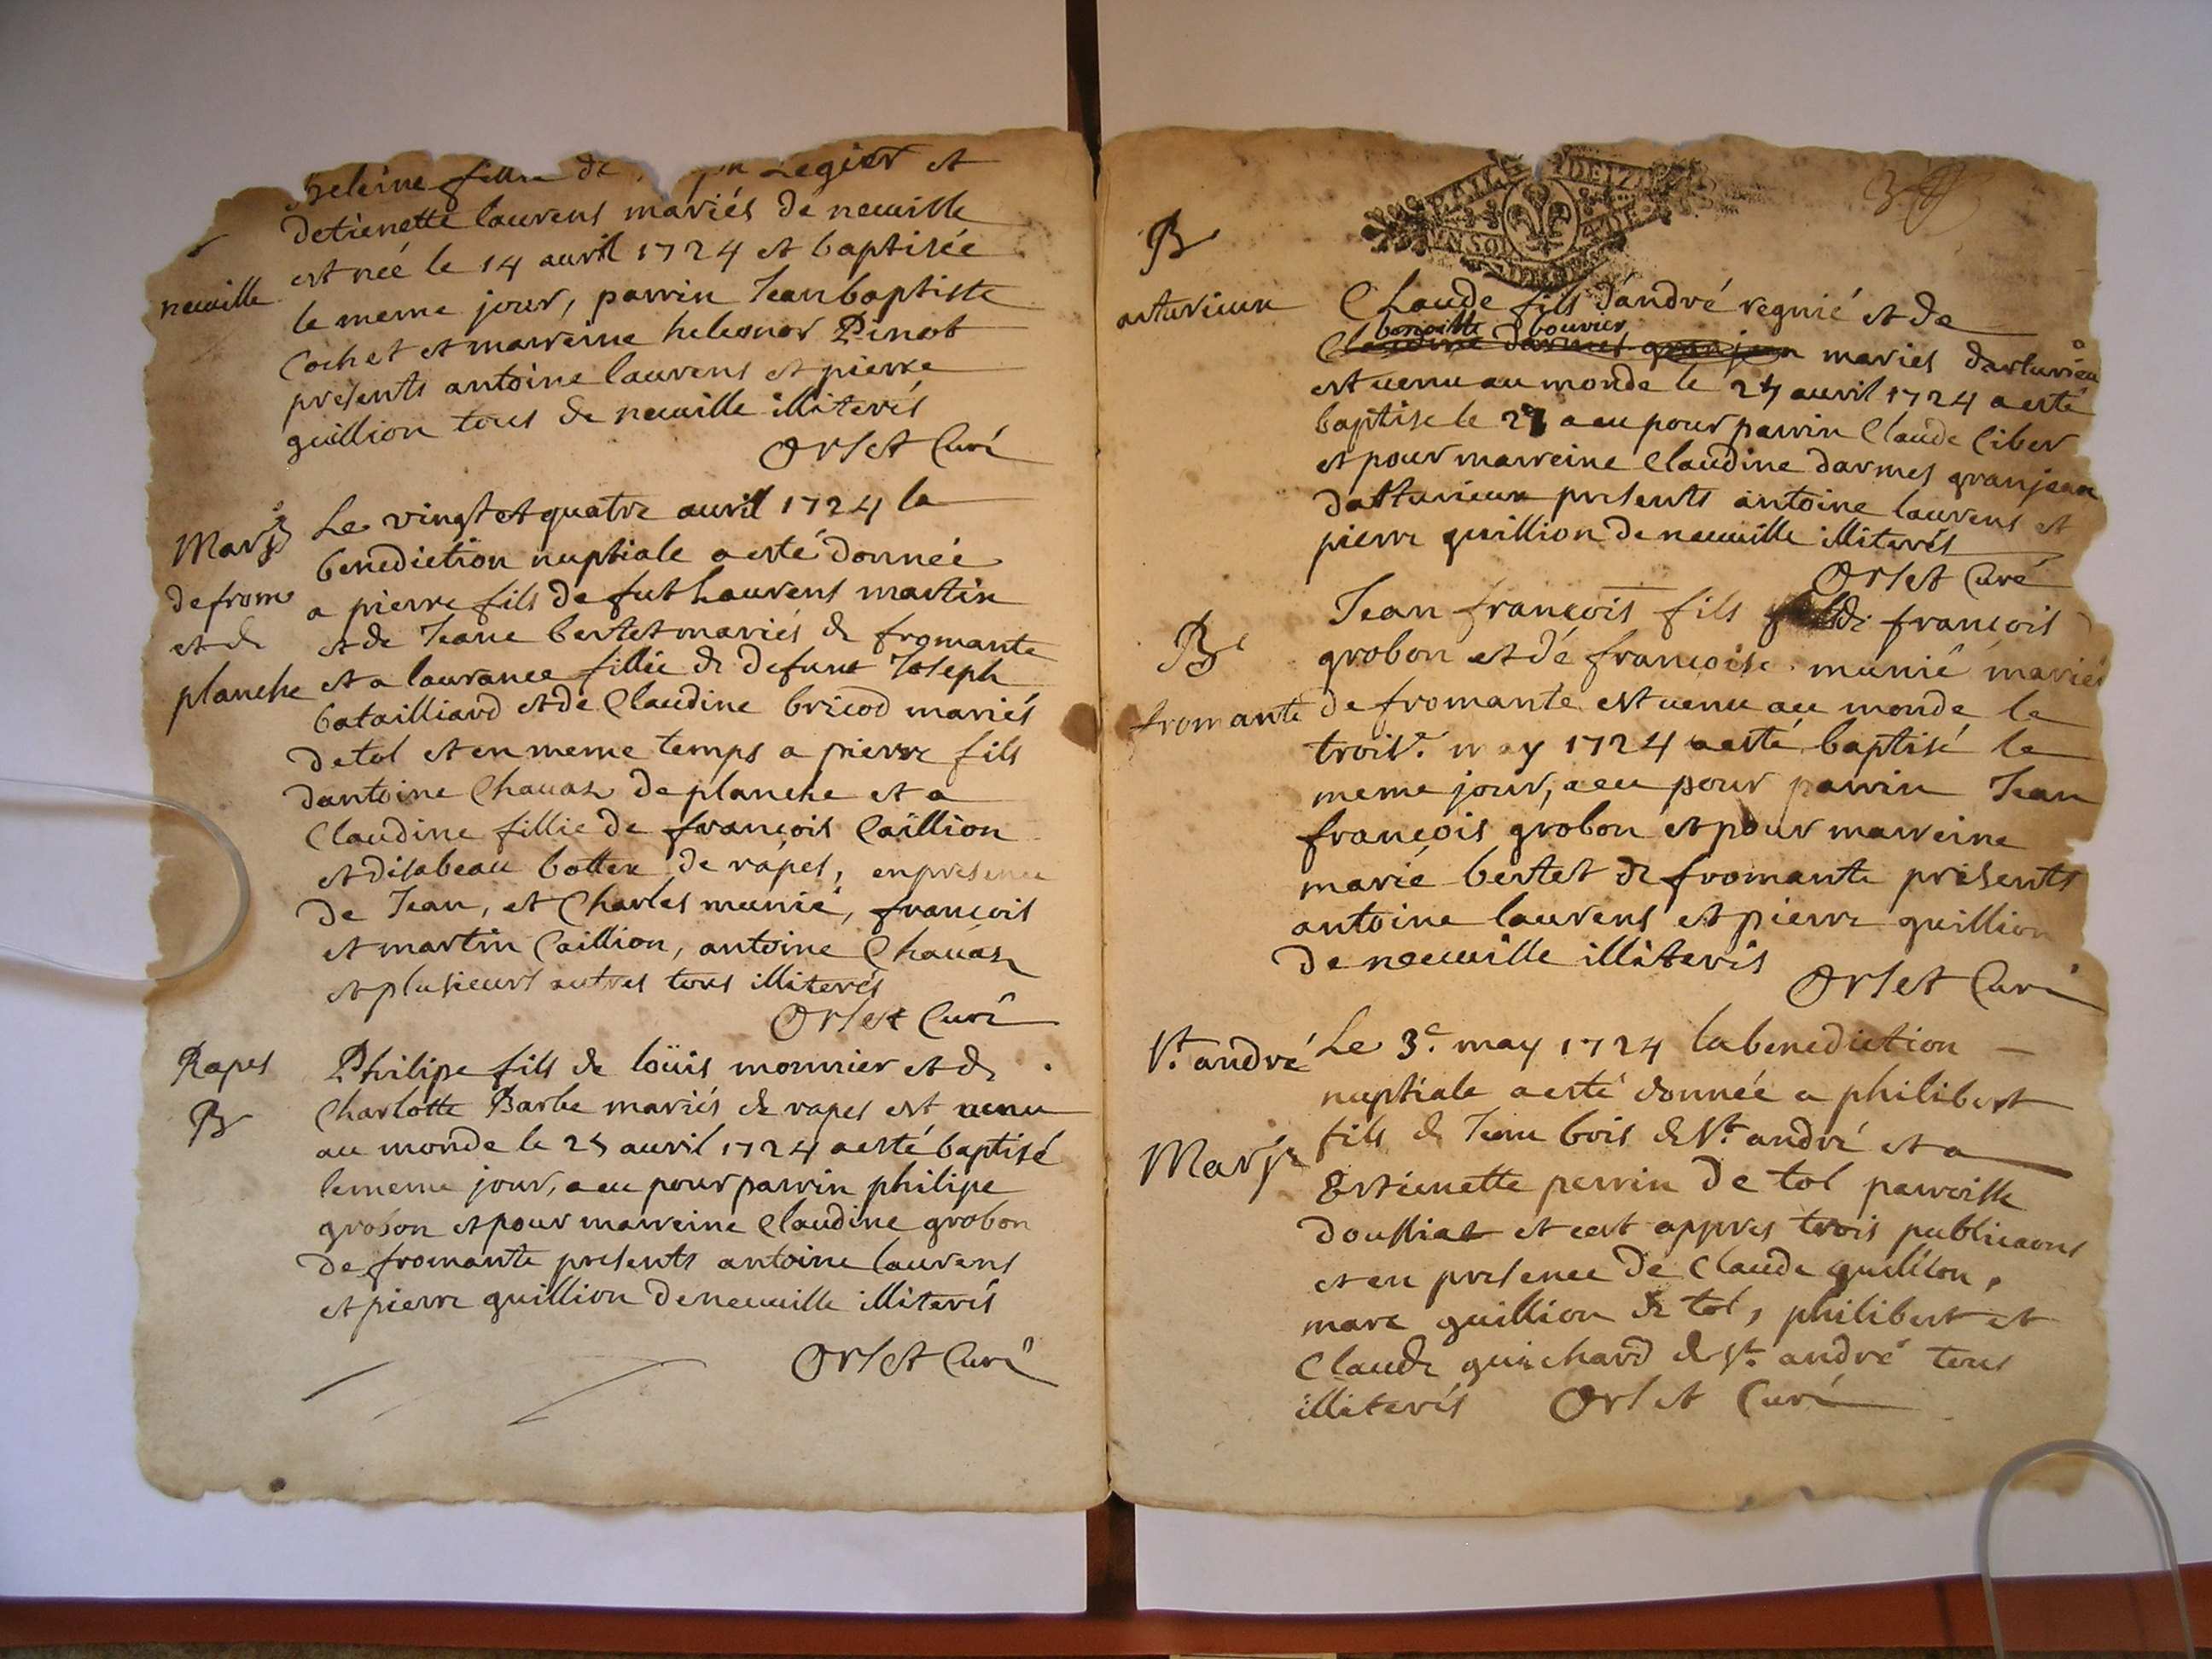 heleine fillie de Legier et
detienette laurens mariés de neuuille
neuuille
est neé le 14 auril 1724 et baptisée
le meme jour, parrin Jean baptiste
Cochet et marreine heleonor Pinot
presents antoine laurens et pierre
guillion tous de neuuille illiterés
Orset Curé
Marge
de from
et de
planche
Le vingt et quatre auril 1724 la
benediction nuptiale a esté donneé
a pierre fils de fut Laurens martin
et de Jeane bertet mariés de fromante
et a laurance fillie de defunt Joseph
batailliard et de Claudine bricod mariés
de tol et en meme temps a pierre fils
dantoine Chauaz de planche et a
Claudine fillie de françois Caillion
et disabeau bottex de rapes, en presence
de Jean, et Charles munié, françois
et martin Caillion, antoine Chauaz
et plusieurs autres tous illiterés
Orset Curé
Rapes
B
Philipe fils de loüis monnier et de
Charlotte Barbe mariés de rapes est uenu
au monde le 25 auril 1724 a esté baptisé
le meme jour, a eu pour parrin philipe
grobon et pour marreine Claudine grobon
de fromante presents antoine laurens
et pierre guillion de neuuille illiterés
Orset Curé
3
B
arturieux
Claude fils d'andré regnié et de
benoitte bouvier
Claudine darmes granjean mariés darturieu
est uenu au monde le 24 auril 1724 a esté
baptise le 27 a eu pour parrin Claude Ciber
et pour marreine Claudine darmes granjean
datturieux presents antoine laurens et
pierre guillion de neuuille illiterés
Orset Curé
B
fromante
Jean françois fils de françois
grobon et de françoise munié mariés
de fromante est uenu au monde le
trois.e may 1724 a esté baptisé le
meme jour, a eu pour parrin Jean
françois grobon et pour marreine
marie bertet de fromante presents
antoine laurens et pierre guillion
de neuuille illiterés
Orset Curé
St. andré
Marge
Le 3.e may 1724 la benediction
nuptiale a esté donnée a philibert
fils de Jean bois de St. andré et a
Estienette perrin de tol parroisse
doussiat et cest appres trois publicaons
et en presence de Claude guillion,
marc guillion de tol, philibert et
Claude guichard de St. andré tous
illiterés Orset Curé